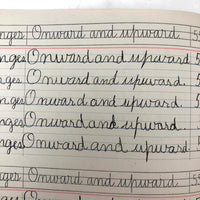 nges Onward and upward. 5
nges Onward and upward. 5
nges Onward and upward.
nges Onward and upward. 5
nges Onward and upward. 5
nges Onward and upward.
nges Onward and upward. 5
nger Onward and upward. 55
Onward and upward. 5